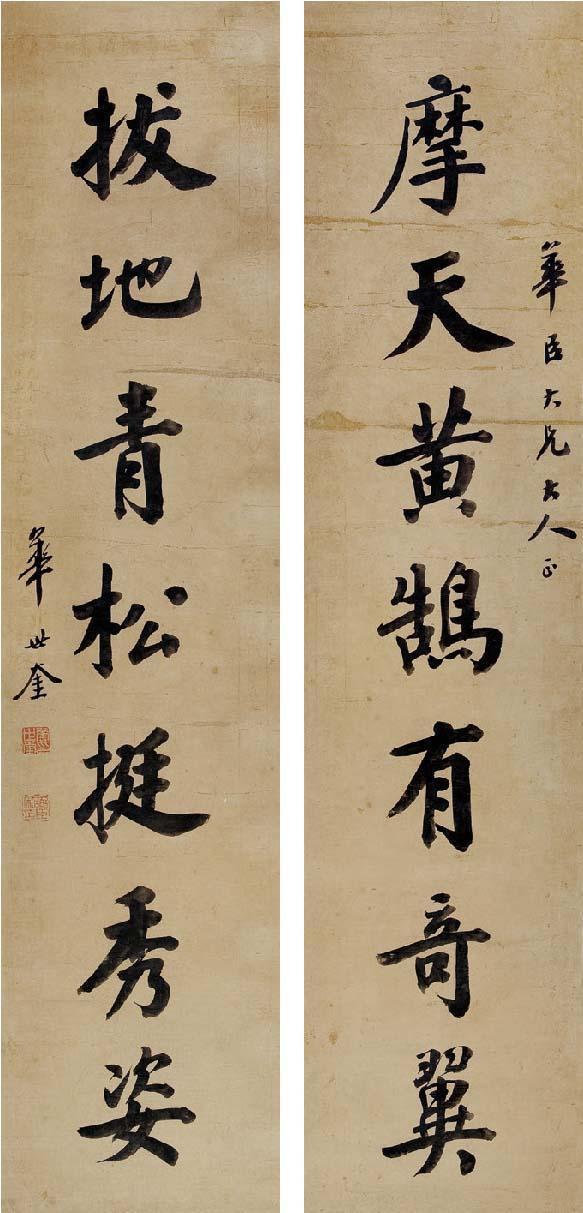 華臣大兄大人正
摩天黃鵠有奇翼
拔地青松挺秀姿
華世奎